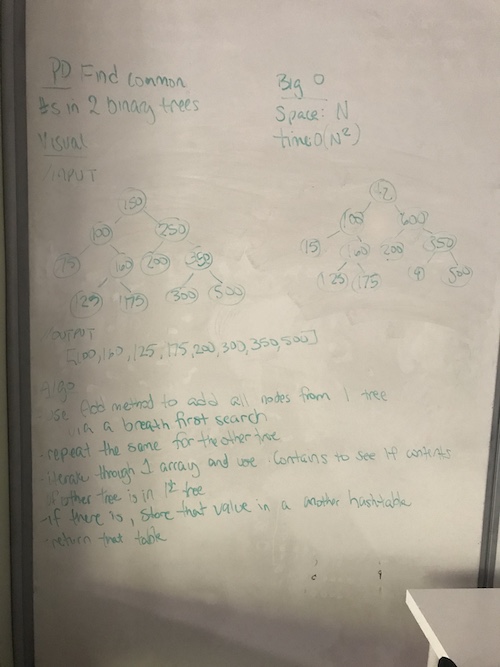 PD Find common
#s in 2 binary trees
Visual
//INPUT
Big O
Space: N
time O(N²)
150
100
250
75
160
200
350
125
175
300
500
42
100
600
15
160
200
350
125
175
9
500
//OUTPUT
[100,160,125,175,200,300,350,500]
Algo
-use Add method to add all nodes from 1 tree
via a breath first search
-repeat the same for the other tree
-iterate through 1 array and use .Contains to see if contents
other tree is in 1st tree
-if there is, store that value in a another hashtable
-return that table